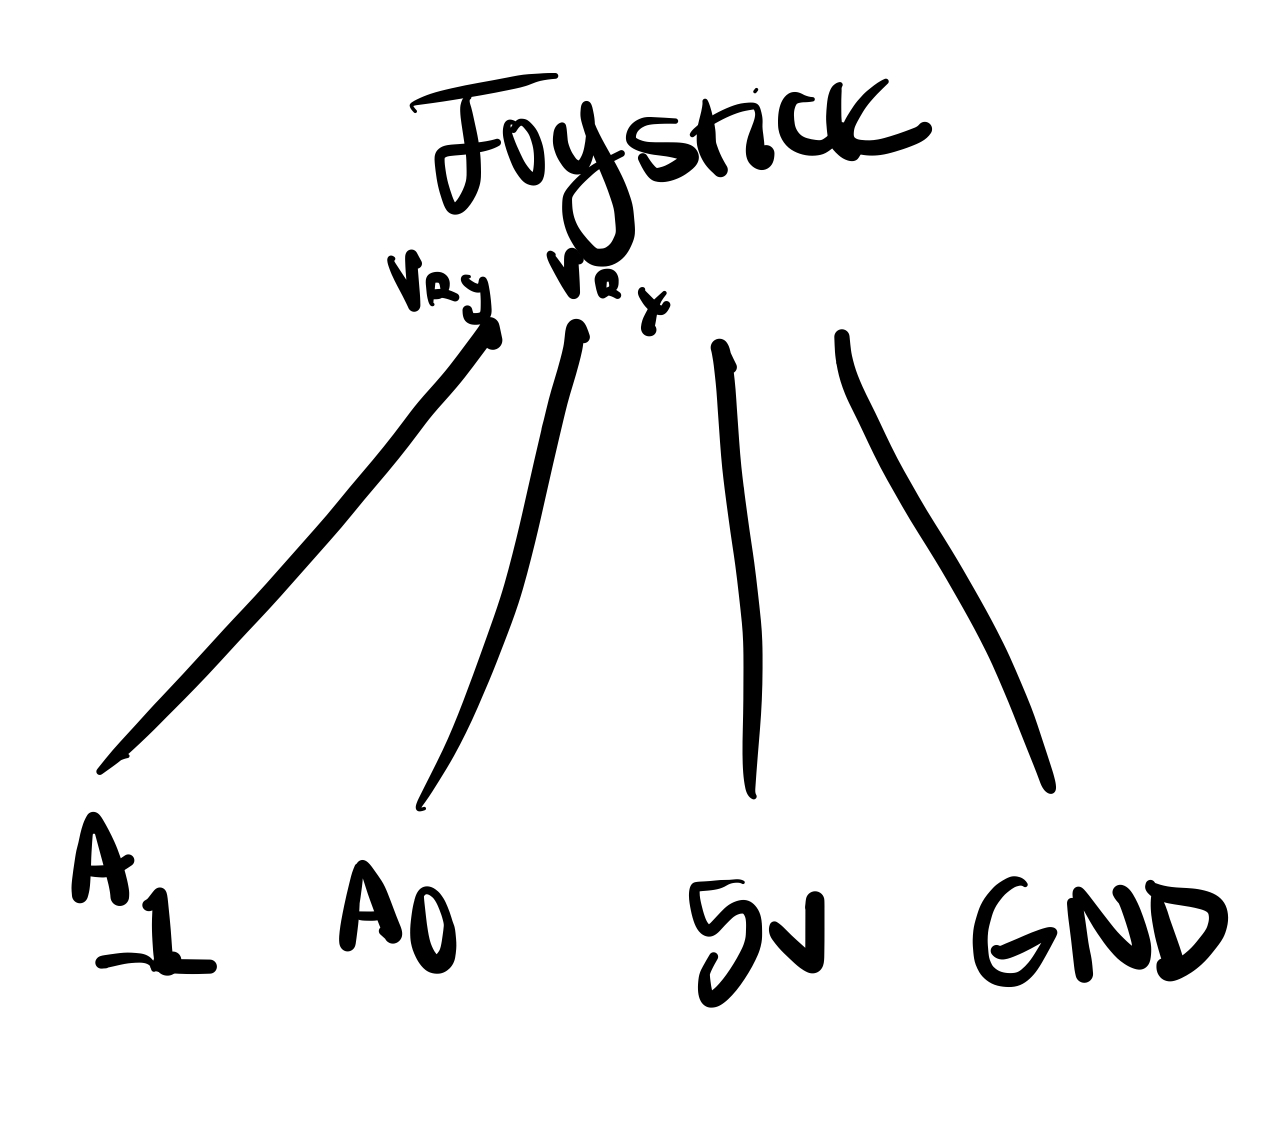 Joystick
VRy VRx
A1 A0 5V GND